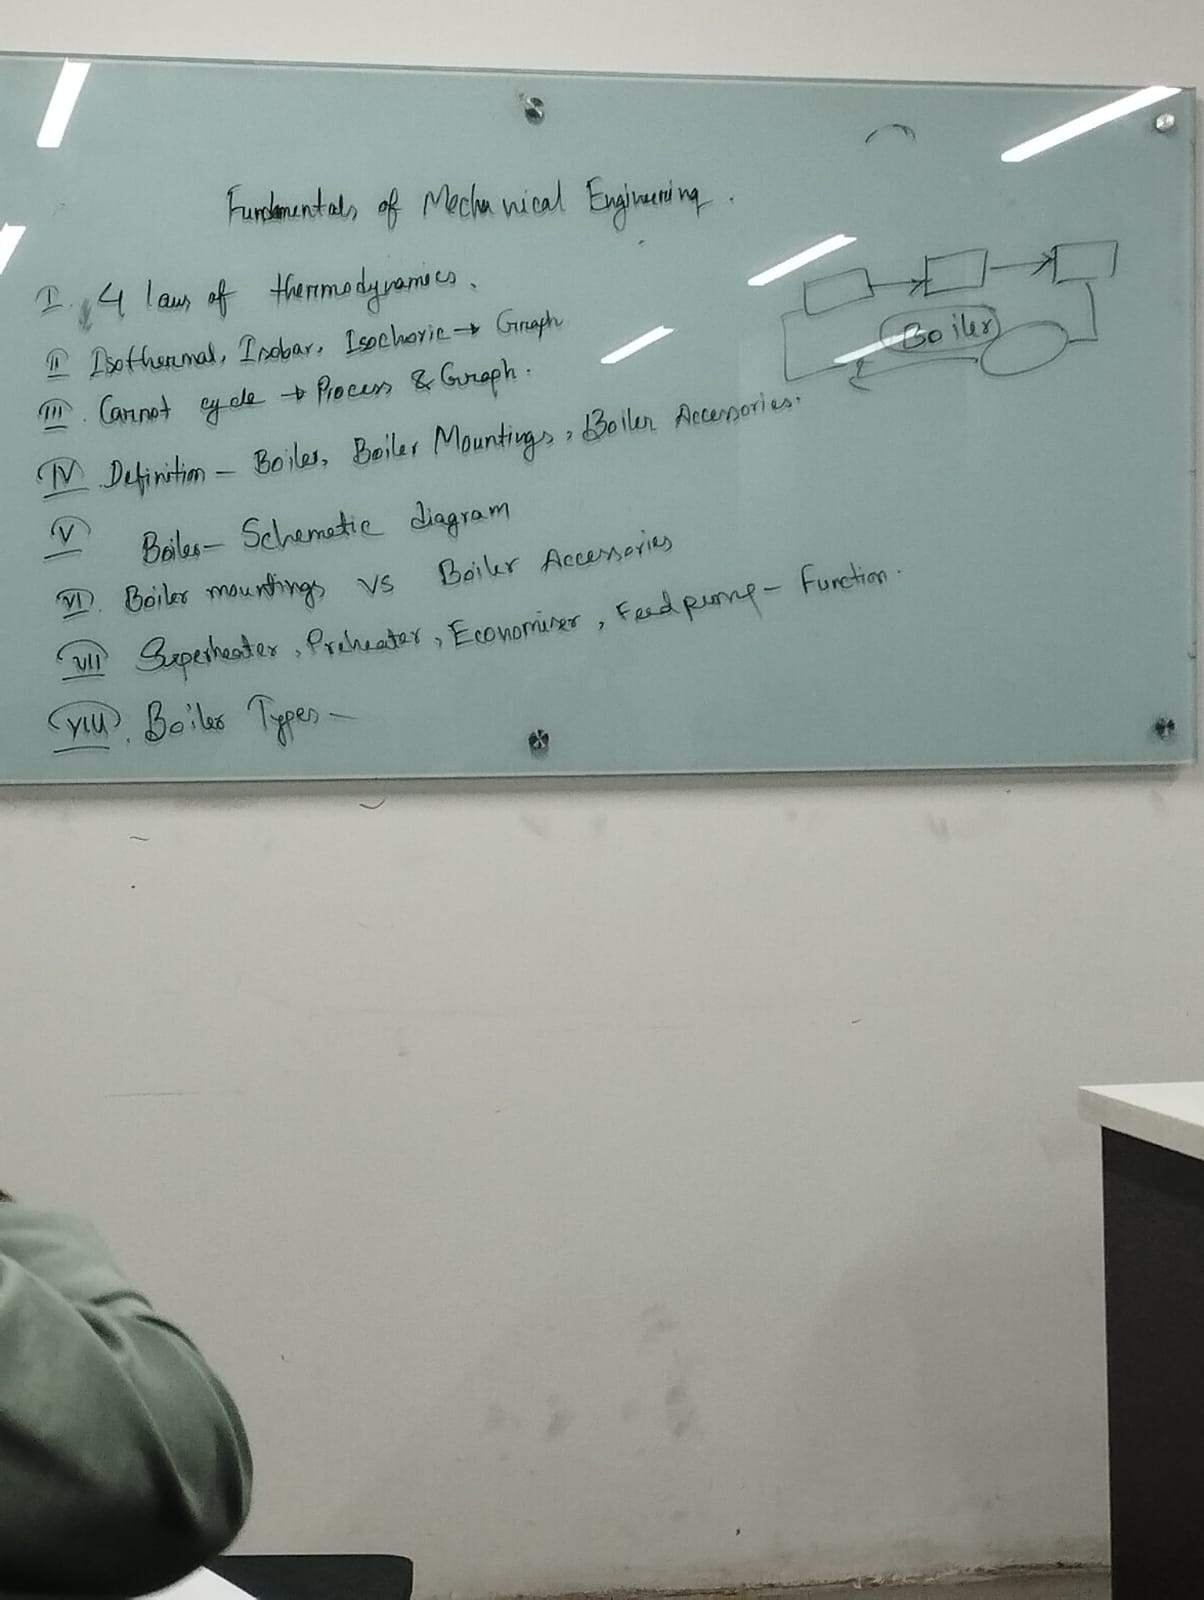 Fundamentals of Mechanical Engineering.
I. 4 laws of thermodynamics.
II Isothermal, Isobar, Isochoric → Graph
III. Carnot cycle → Process & Graph.
IV. Definition - Boiler, Boiler Mountings, Boiler Accessories.
V Boiler - Schematic diagram
VI. Boiler mountings vs Boiler Accessories
VII Superheater, Preheater, Economiser, Feed pump - Function.
VIII. Boiler Types -
Boiler